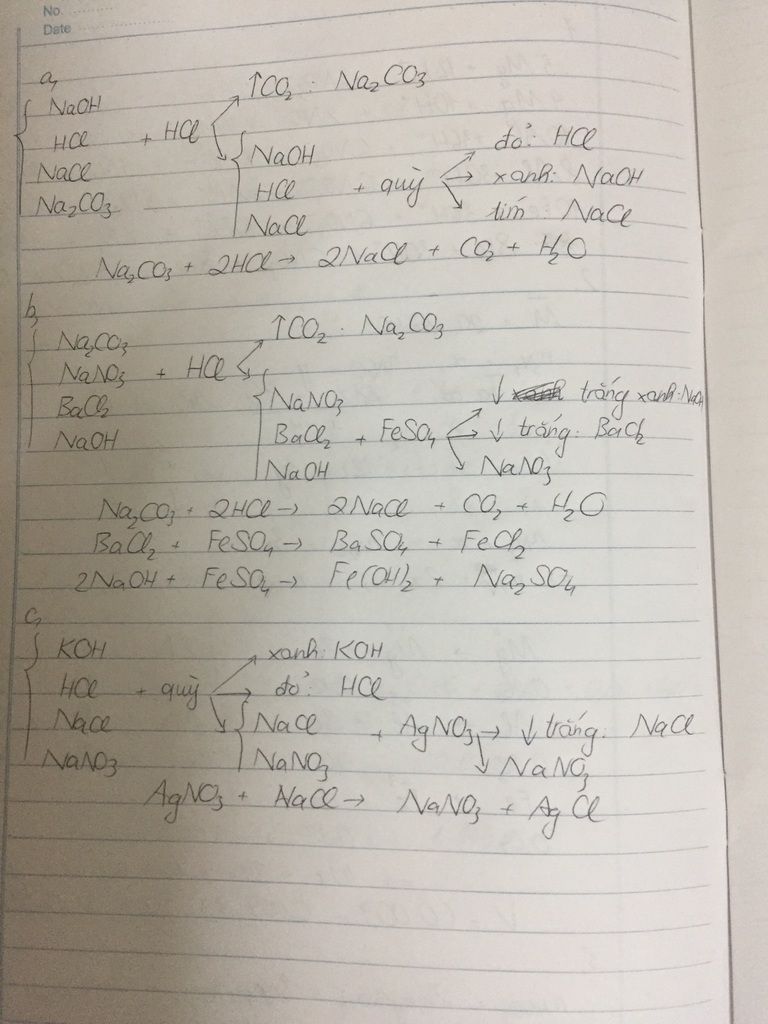 No.
Date
a,
NaOH
HCl + HCl ↑CO₂ : Na₂CO₃
NaCl
Na₂CO₃
NaOH
HCl + quỳ
NaCl
đỏ: HCl
xanh: NaOH
tím: NaCl
Na₂CO₃ + 2HCl → 2NaCl + CO₂ + H₂O
b,
Na₂CO₃
NaNO₃ + HCl ↑CO₂ . Na₂CO₃
BaCl₂
NaOH
NaNO₃
BaCl₂ + FeSO₄
NaOH
↓ trắng xanh: NaOH
↓ trắng: BaCl₂
NaNO₃
Na₂CO₃ + 2HCl → 2NaCl + CO₂ + H₂O
BaCl₂ + FeSO₄ → BaSO₄ + FeCl₂
2NaOH + FeSO₄ → Fe(OH)₂ + Na₂SO₄
c,
KOH
HCl + quỳ
NaCl
NaNO₃
xanh: KOH
đỏ: HCl
NaCl + AgNO₃ → ↓ trắng: NaCl
NaNO₃ ↘ NaNO₃
AgNO₃ + NaCl → NaNO₃ + AgCl